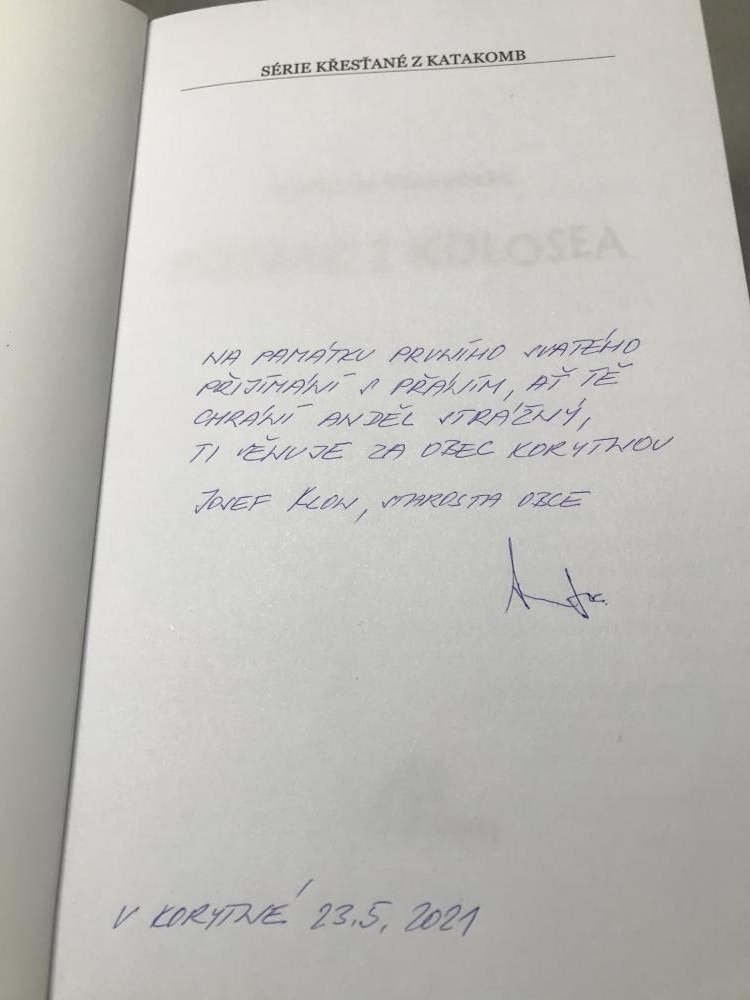 SÉRIE KŘESŤANÉ Z KATAKOMB
Z KOLOSEA
NA PAMÁTKU PRVNÍHO SVATÉHO
PŘIJÍMÁNÍ S PŘÁNÍM, AŤ TĚ
CHRÁNÍ ANDĚL STRÁŽNÝ,
TI VĚNUJE ZA OBEC KORYTNOU
JOSEF KLON, STAROSTA OBCE
V KORYTNÉ 23.5.2021